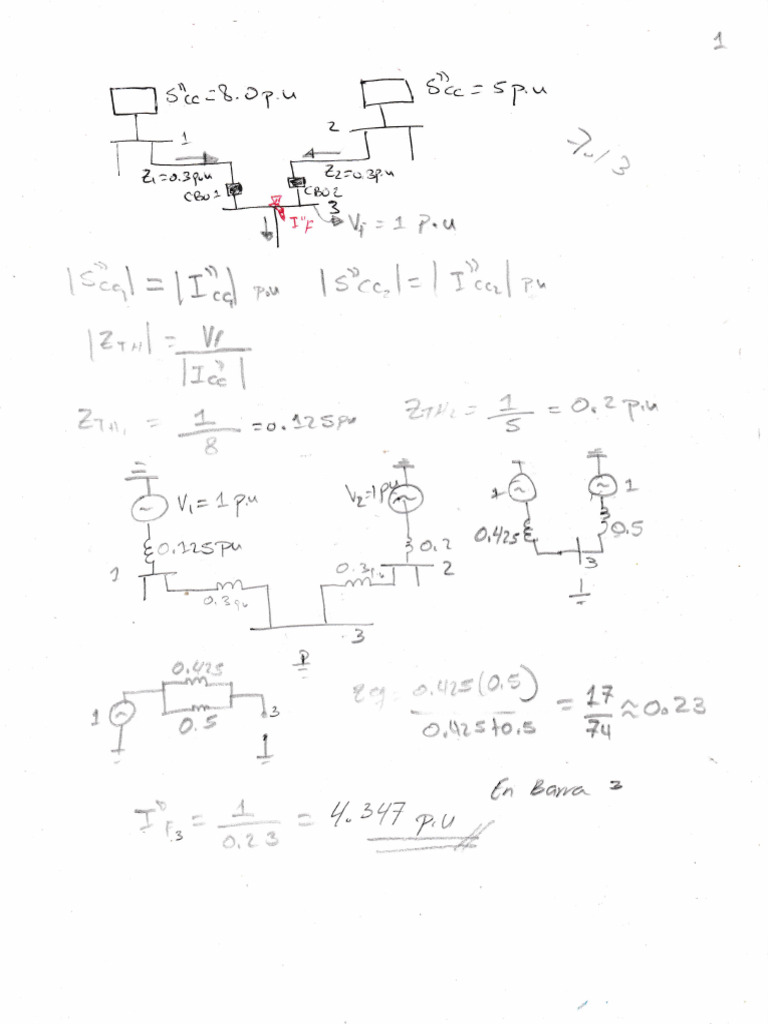 1
S"cc = 8.0 p.u
S"cc = 5 p.u
1
2
Z₁ = 0.3 p.u
Z₂ = 0.3 p.u
CB01
CB02
3
I"F
Vf = 1 p.u
|S"cc₁| = |I"cc₁| p.u |S"cc₂| = |I"cc₂| pu
|ZTH| = Vf / |Icc"|
ZTH₁ = 1/8 = 0.125 pu ZTH₂ = 1/5 = 0.2 p.u
V₁ = 1 p.u
V₂ = 1 pu
1
1
0.125 pu
0.2
0.425
0.5
1
0.3 p.u
0.3 p.u
2
3
3
0.425
1
0.5
3
Zeq = 0.425(0.5) / 0.425+0.5 = 17/74 ≈ 0.23
En Barra 3
I"F3 = 1/0.23 = 4.347 p.u